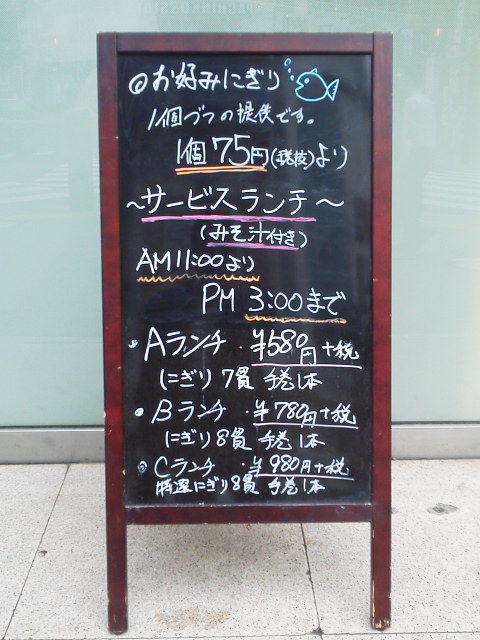 ◎お好みにぎり
1個づつの提供です。
1個75円(税抜)より
~サービスランチ~
(みそ汁付き)
AM11:00より
PM 3:00まで
・Aランチ・¥580円+税
にぎり7貫 手巻1本
・Bランチ・¥780円+税
にぎり8貫 手巻1本
・Cランチ・¥980円+税
特選にぎり8貫 手巻1本